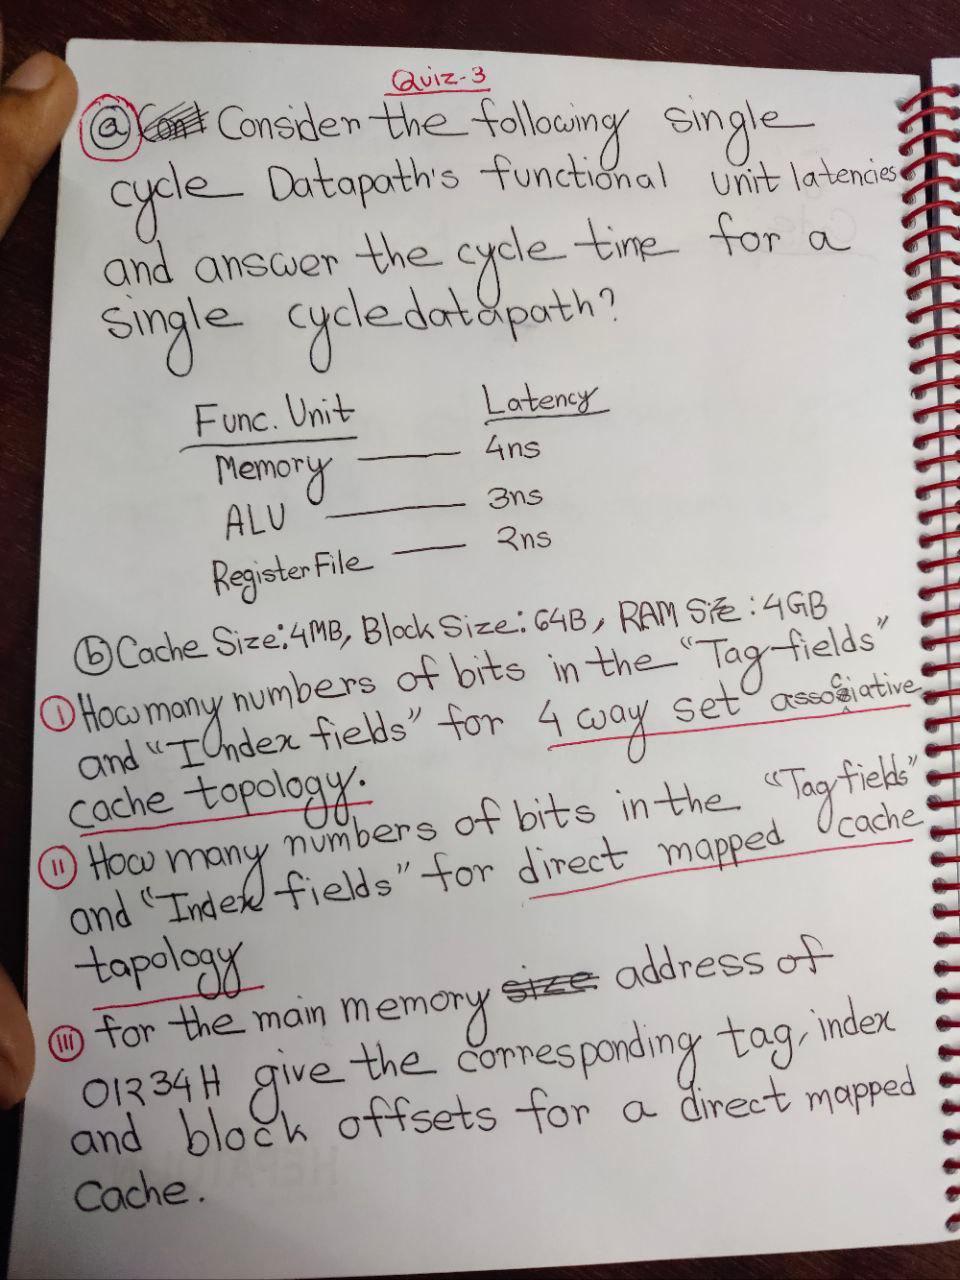 Quiz-3
(a) Consider the following single
cycle Datapath's functional unit latencies
and answer the cycle time for a
single cycle datapath?
Func. Unit Latency
Memory — 4ns
ALU — 3ns
Register File — 2ns
(b) Cache Size: 4MB, Block Size: 64B, RAM Size: 4GB
(I) How many numbers of bits in the "Tag fields"
and "Index fields" for 4 way set associative
cache topology.
(II) How many numbers of bits in the "Tag fields"
and "Index fields" for direct mapped cache
tapology
(III) for the main memory address of
01234H give the corresponding tag, index
and block offsets for a direct mapped
Cache.